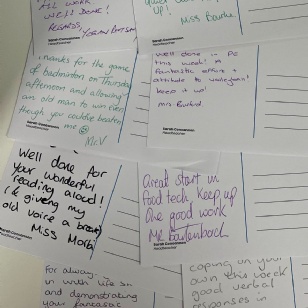 ALL WORK
WELL DONE!
REGARDS,
up!
Miss Bourke.
Sarah Consonson
Headteacher
Thanks for the game
of badminton on Thursday
afternoon and allowing
an old man to win even
though you could've beaten
me
Mr.V
Sarah Consonson
Headteacher
Well done in PE
this week! A
fantastic effort +
attitude to
keep it up!
Mrs
Sarah Consonson
Headteacher
Well done for
your wonderful
reading aloud!
(& giving my
old voice a break)
Miss
Great start in
food tech, keep up
the good work
Mr
Sarah Consonson
Headteacher
for always
in with life Sn
and demonstrating
your fantastic
coping on your
own this week
good verbal
responses in